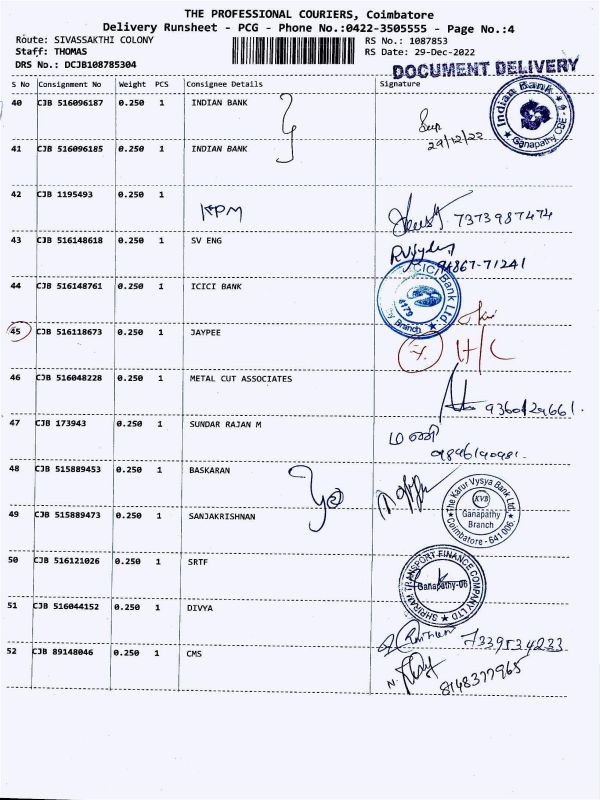 THE PROFESSIONAL COURIERS, Coimbatore
Delivery Runsheet - PCG - Phone No.:0422-3505555 - Page No.:4
Route: SIVASSAKTHI COLONY RS No.: 1087853
Staff: THOMAS RS Date: 29-Dec-2022
DRS No.: DCJB108785304
DOCUMENT DELIVERY
S No Consignment No Weight PCS Consignee Details Signature
40 CJB 516096187 0.250 1 INDIAN BANK
Indian Bank Ganapathy CBE
29/12/22
41 CJB 516096185 0.250 1 INDIAN BANK
42 CJB 1195493 0.250 1
KPM
7373987474
43 CJB 516148618 0.250 1 SV ENG
94867-71241
44 CJB 516148761 0.250 1 ICICI BANK
ICICI Bank Ltd. 4179 Branch
45 CJB 516118673 0.250 1 JAYPEE
H/C
46 CJB 516048228 0.250 1 METAL CUT ASSOCIATES
47 CJB 173943 0.250 1 SUNDAR RAJAN M
மணி
48 CJB 515889453 0.250 1 BASKARAN
The Karur Vysya Bank Ltd. KVB Ganapathy Branch Coimbatore - 641 006.
49 CJB 515889473 0.250 1 SANJAKRISHNAN
50 CJB 516121026 0.250 1 SRTF
SHRIRAM TRANSPORT FINANCE COMPANY LTD Ganapathy-06
51 CJB 516044152 0.250 1 DIVYA
7339534233
52 CJB 89148046 0.250 1 CMS
8148377965